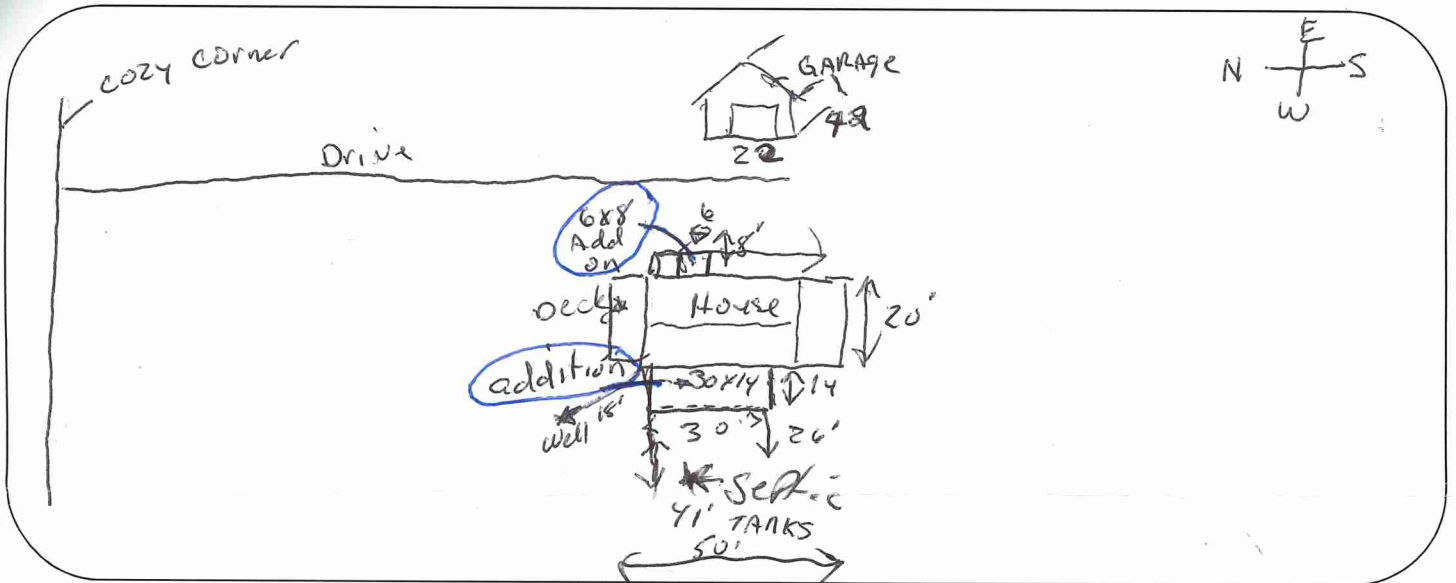 cozy corner
E
N S
W
GARAGE
22
Drive
6x8
Add
on
6
8'
Deck
House
20'
addition
30x14
14
15'
Well
30'
26'
Septic
41' TANKS
50'